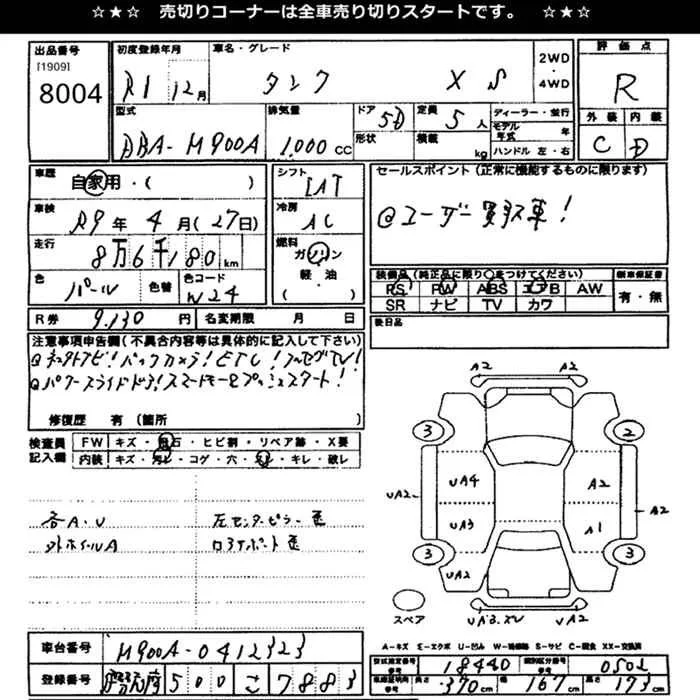 ☆★☆ 売切りコーナーは全車売り切りスタートです。 ☆★☆
出品番号
[1909]
8004
初度登録年月
R1 12月
車名・グレード
タンク XS
2WD
4WD
評価点
R
型式
DBA-M900A
排気量
1,000 cc
ドア
5D
形状
定員
5人
積載
kg
ディーラー・並行
モデル年式 年
ハンドル 左・右
外装 内装
C D
車歴
自家用・( )
シフト
IAT
セールスポイント(正常に機能するものに限ります)
@ユーザー買取車!
車検
R9年4月(27日)
冷房
AC
走行
8万6千180km
燃料
ガソリン
軽・油
( )
色
パール
色替
色コード
W24
装備品(純正品に限り○をつけてください)
新車保証書
PS PW ABS エアB AW
SR ナビ TV カワ
有・無
R券 9,130円
名変期限 月 日
後日品
注意事項申告欄(不具合内容等は具体的に記入して下さい)
バックカメラ!ETC!フルセグTV!
@パワースライドドア!スマートキー&プッシュスタート!
修復歴 有(箇所 )
検査員
記入欄
FW キズ・飛石・ヒビ割・リペア跡・X要
内装 キズ・汚れ・コゲ・穴・キレ・破レ
各A・U
左センターピラー歪
外ホイールA
ロアサポート歪
A2
A2
3
2
UA4
A2
UA2
A2
UA3
A1
3
3
UA2
スペア
UA3.XV
UA2
A-キズ E-エクボ U-凹み W-補修跡 S-サビ C-腐食 XX-交換済
車台番号
M900A-0412323
登録番号
500 こ 7883
型式指定番号
18440
類別区分番号
0502
車検証内寸
長さ 370cm 幅 167cm 高さ 173cm